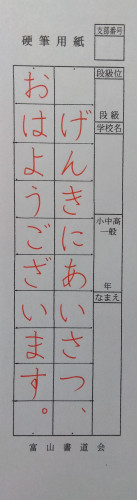 硬筆用紙
支部番号
段級位
段級
学校名
小中高
一般
年
なまえ
げんきにあいさつ、
おはようございます。
富山書道会